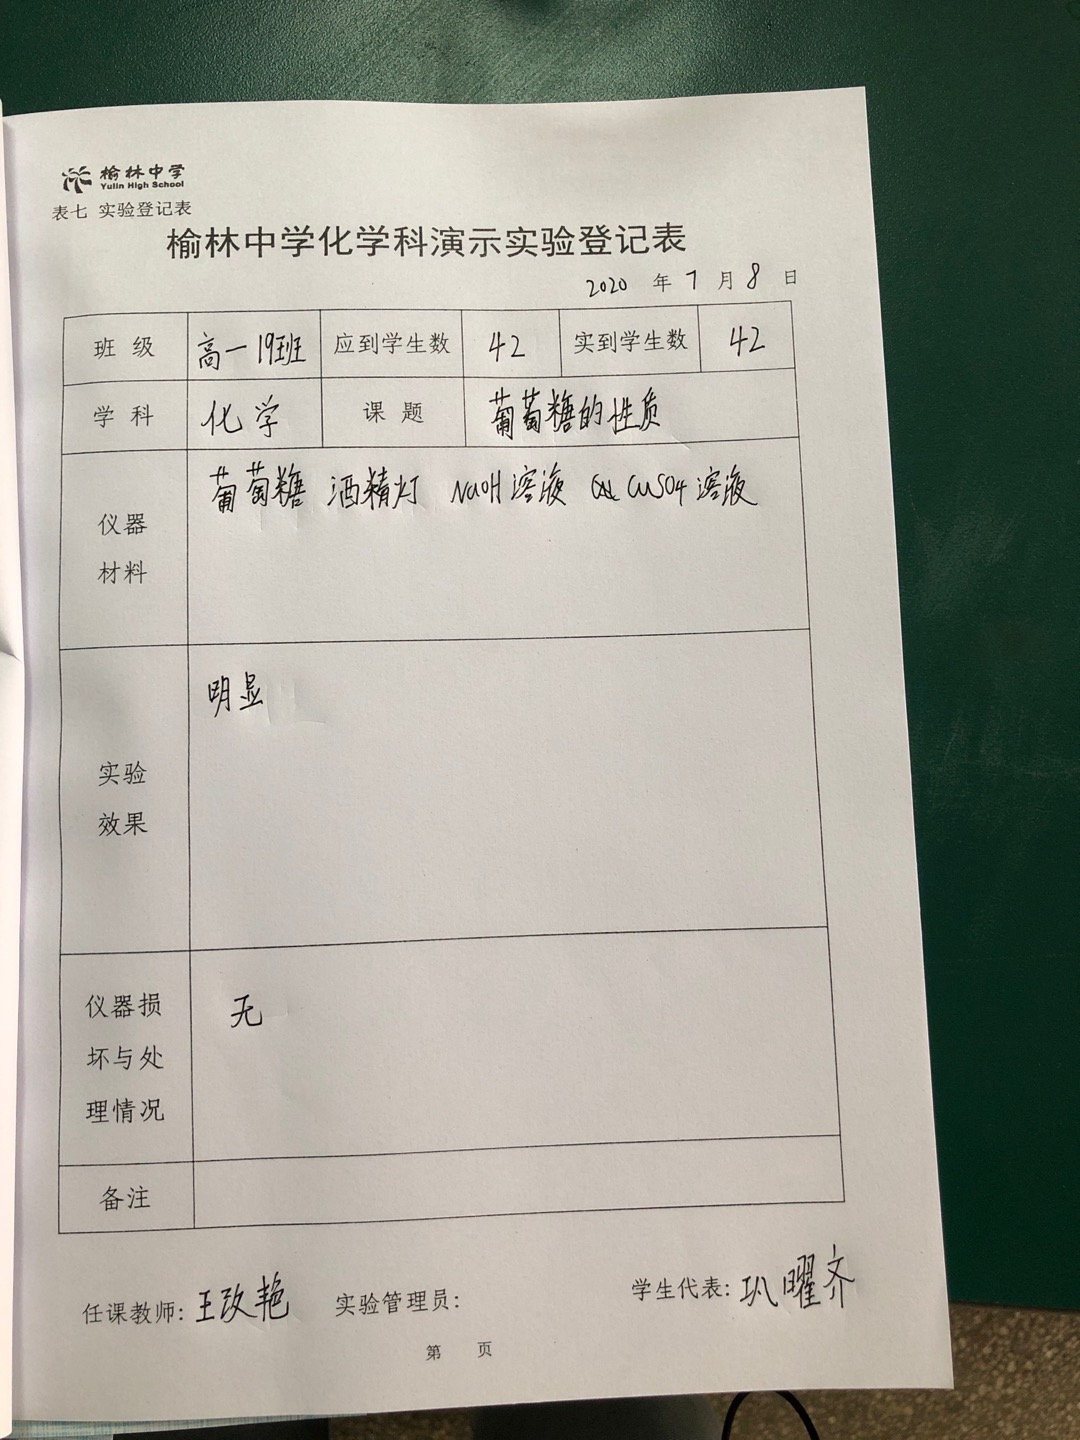 榆林中学
Yulin High School
表七 实验登记表
榆林中学化学科演示实验登记表
2020 年 7 月 8 日
班 级 高一19班 应到学生数 42 实到学生数 42
学 科 化学 课 题 葡萄糖的性质
仪器 葡萄糖 酒精灯 NaOH溶液 CuSO4溶液
材料
明显
实验
效果
仪器损 无
坏与处
理情况
备注
任课教师: 王改艳 实验管理员: 学生代表: 曜齐
第 页